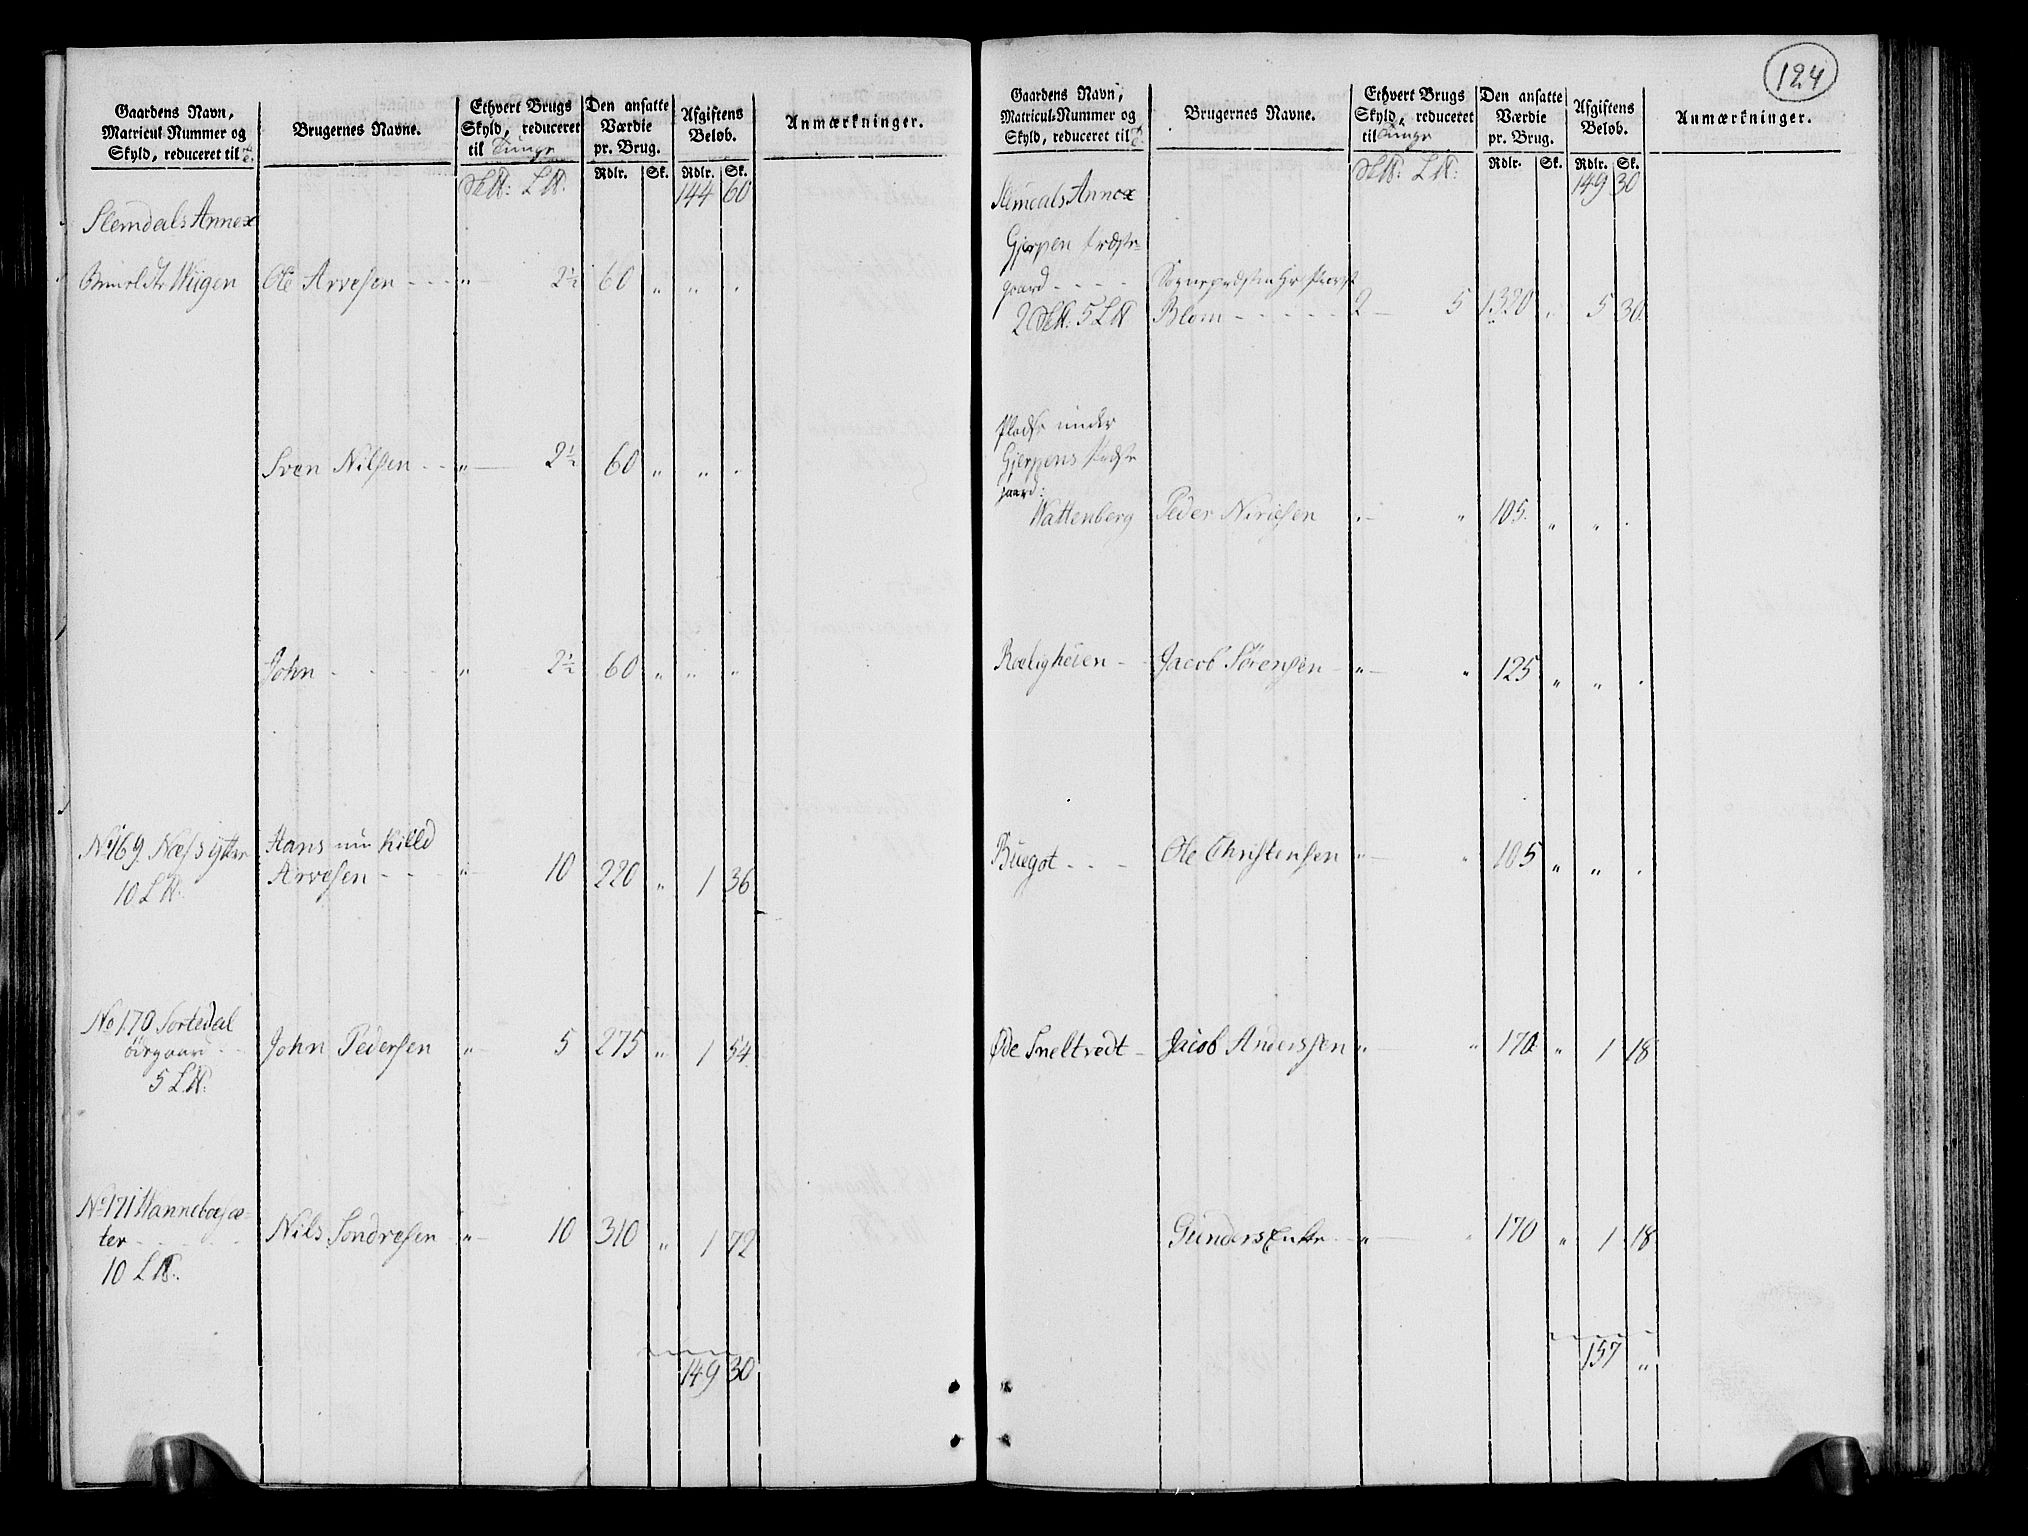 Gaardens Navn,
Matricul-Nummer og
Skyld, reduceret til
Brugernes Navne.
Ethvert Brugs
Skyld, reduceret
til Tunge
Den ansatte
Værdie
pr. Brug.
Afgiftens
Beløb.
Anmærkninger.
Rdlr. Sk. Rdlr. Sk.
144 60
Slemdals Annex
Wiigen Ole Arvesen - - - " 2½ 60 " " "
Sven Nilsen - - " 2½ 60 " " "
John - - - - " 2½ 60 " " "
No 169 Næss ytter Hans
10 L℔. Arvesen - - - " 10 220 " 1 36
No 170 Sortedal
ödegaard - - John Pedersen " 5 275 " 1 54
5 L℔.
No 171 Wanneboesæ-
ter - - - - Nils Sondresen " 10 310 " 1 72
10 L℔.
149 30
124
Gaardens Navn,
Matricul-Nummer og
Skyld, reduceret til
Brugernes Navne.
Ethvert Brugs
Skyld, reduceret
til Tunge
Den ansatte
Værdie
pr. Brug.
Afgiftens
Beløb.
Anmærkninger.
Rdlr. Sk. Rdlr. Sk.
149 30
Slemdals Annex
Gjerpen Præste-
gaard - - - - Sognepræsten Hr
2 S℔: 5 L℔ Blom - - - - - 2 - 5 1320 " 5 30
Pladse under
Gjerpens Præste
gaard:
Wattenberg Peder " " 105 " " "
Roeligheien - - Jacob Sörensen - " " 125 " " "
Buegot - - - Ole Christensen " " 105 " " "
Øde Sneltvedt - Jacob Anderssen " " 170 " 1 18
Gunders Enke - - " " 170 " 1 18
157 "